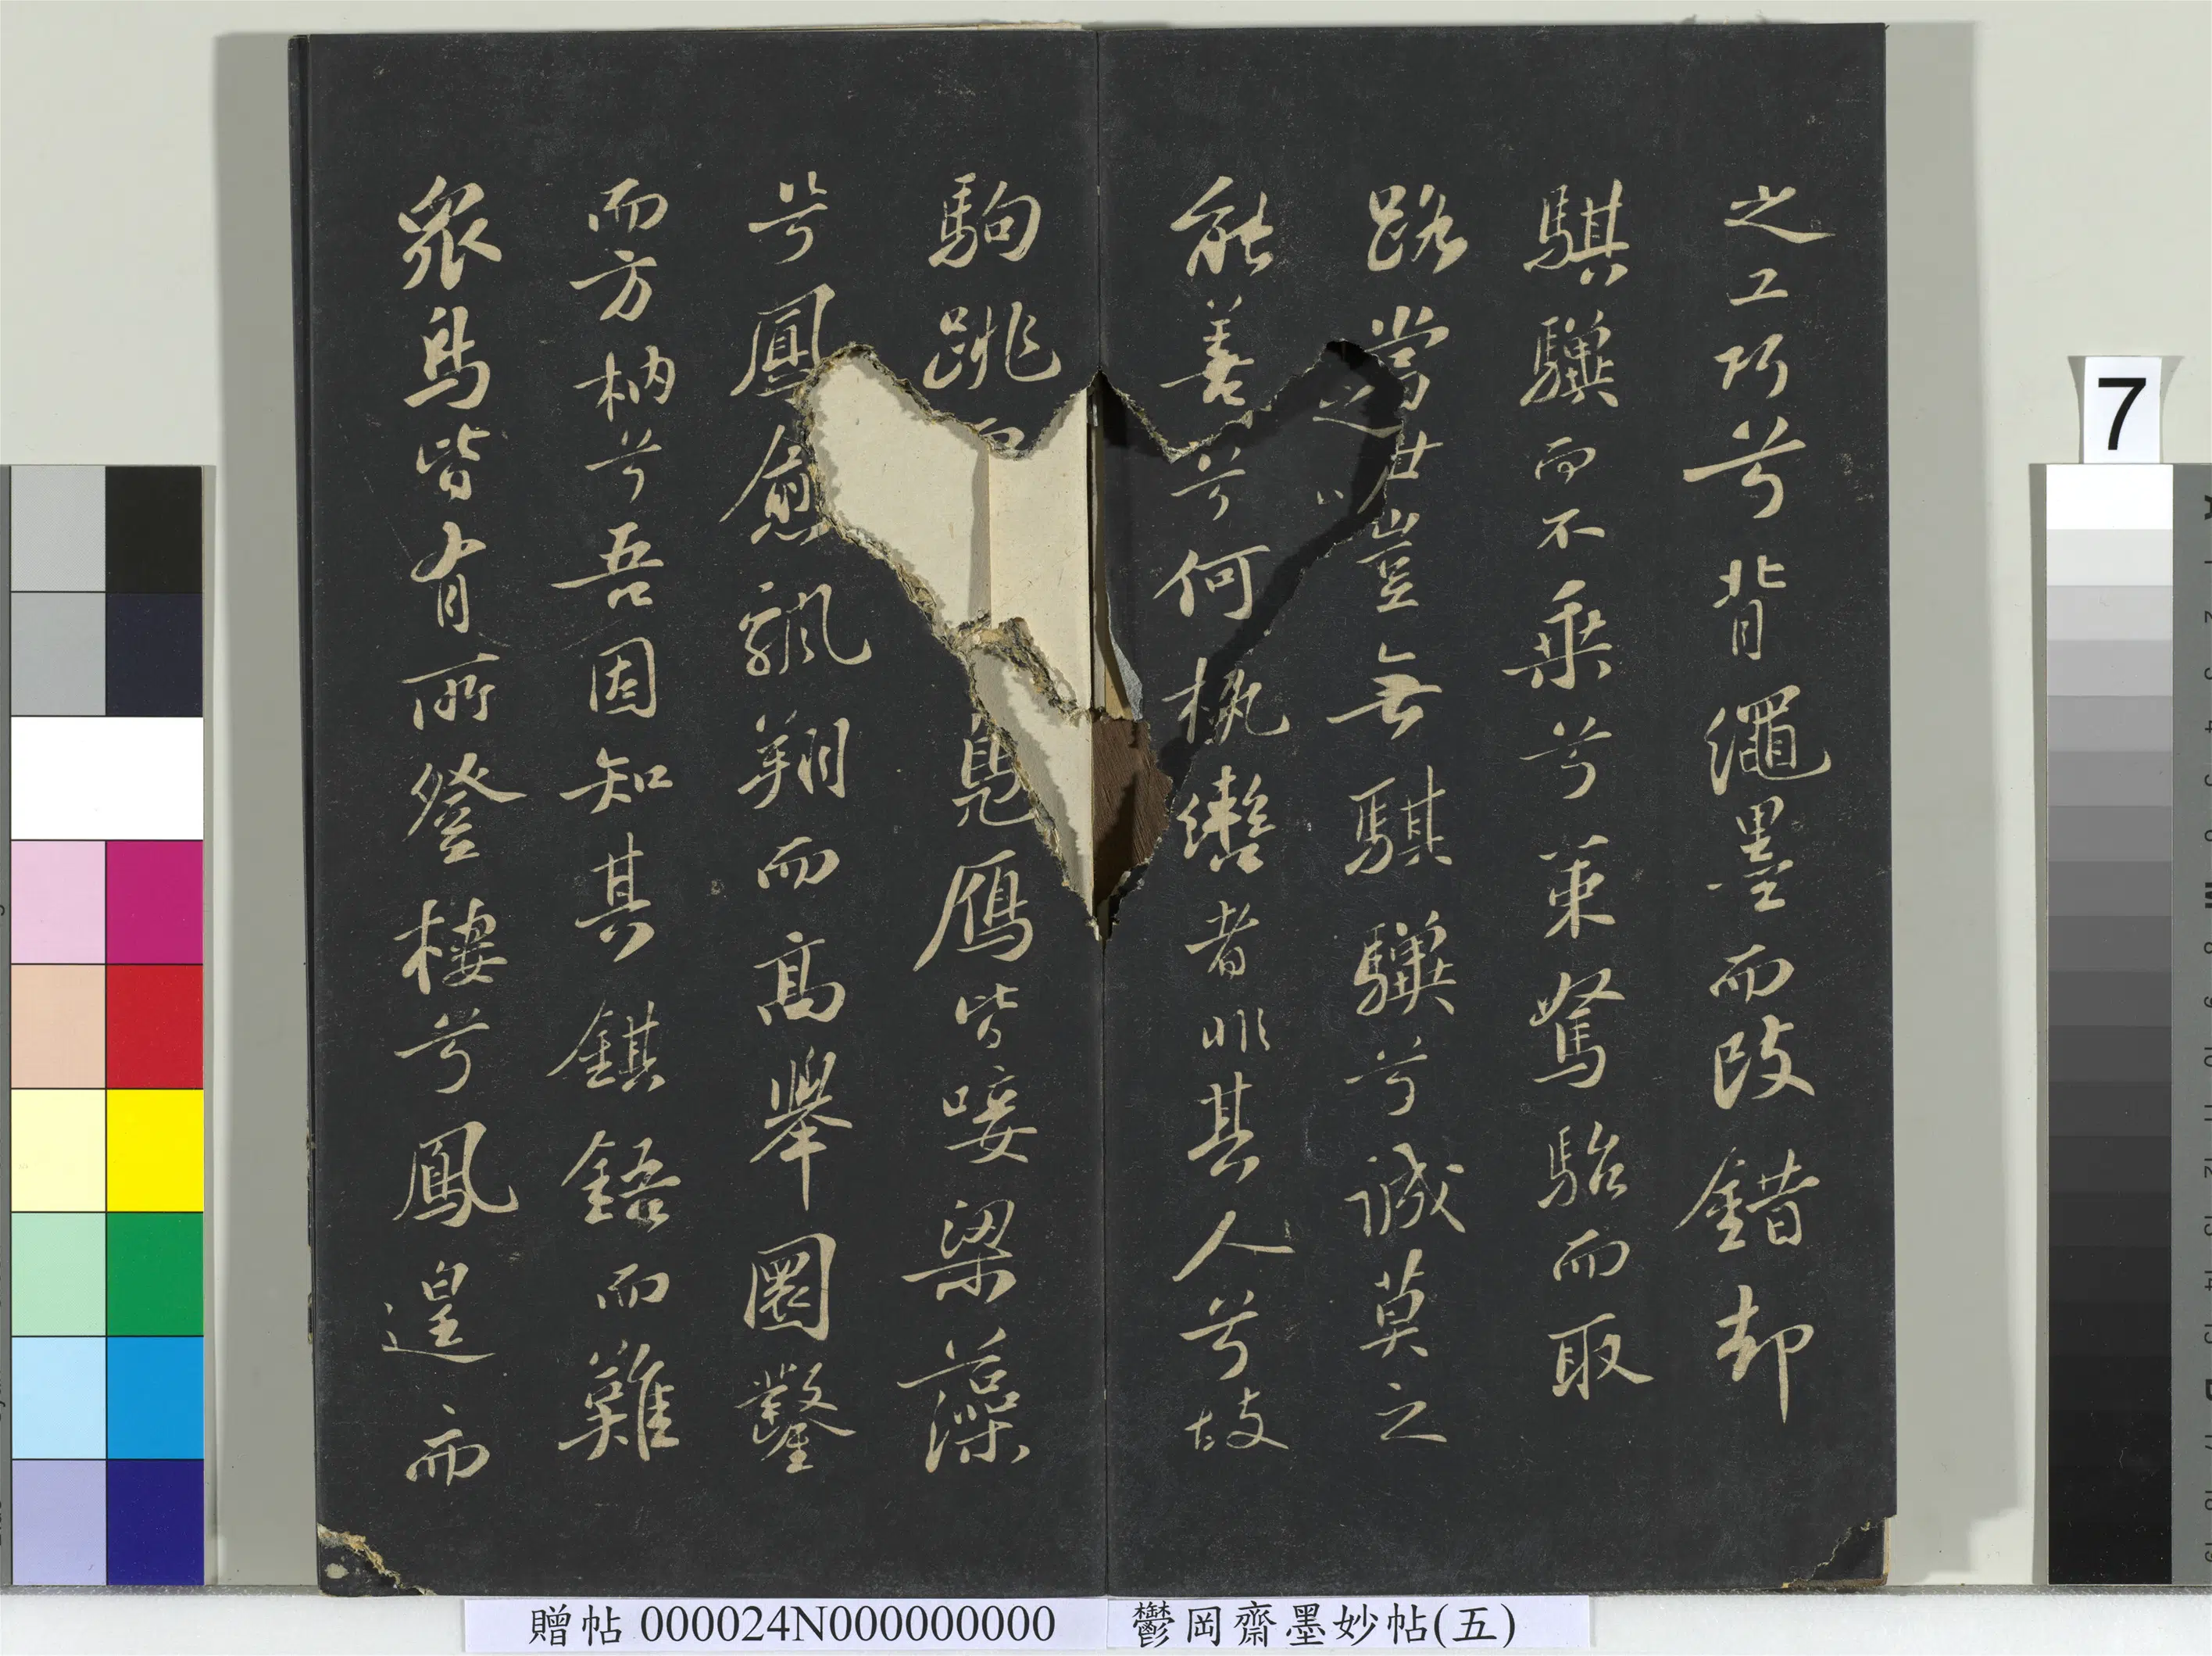 之工巧兮背繩墨而改錯却
騏驥而不乘兮策駑駘而取
路當世豈無騏驥兮誠莫之
能善兮何執轡者非其人兮故
駒跳而鳧鴈皆唼梁藻
兮鳳愈飄翔而高舉圜鑿
而方枘兮吾因知其錤鋙而難
衆鳥皆有所登棲兮鳳遑而
7
贈帖 000024N000000000 鬱岡齋墨妙帖(五)